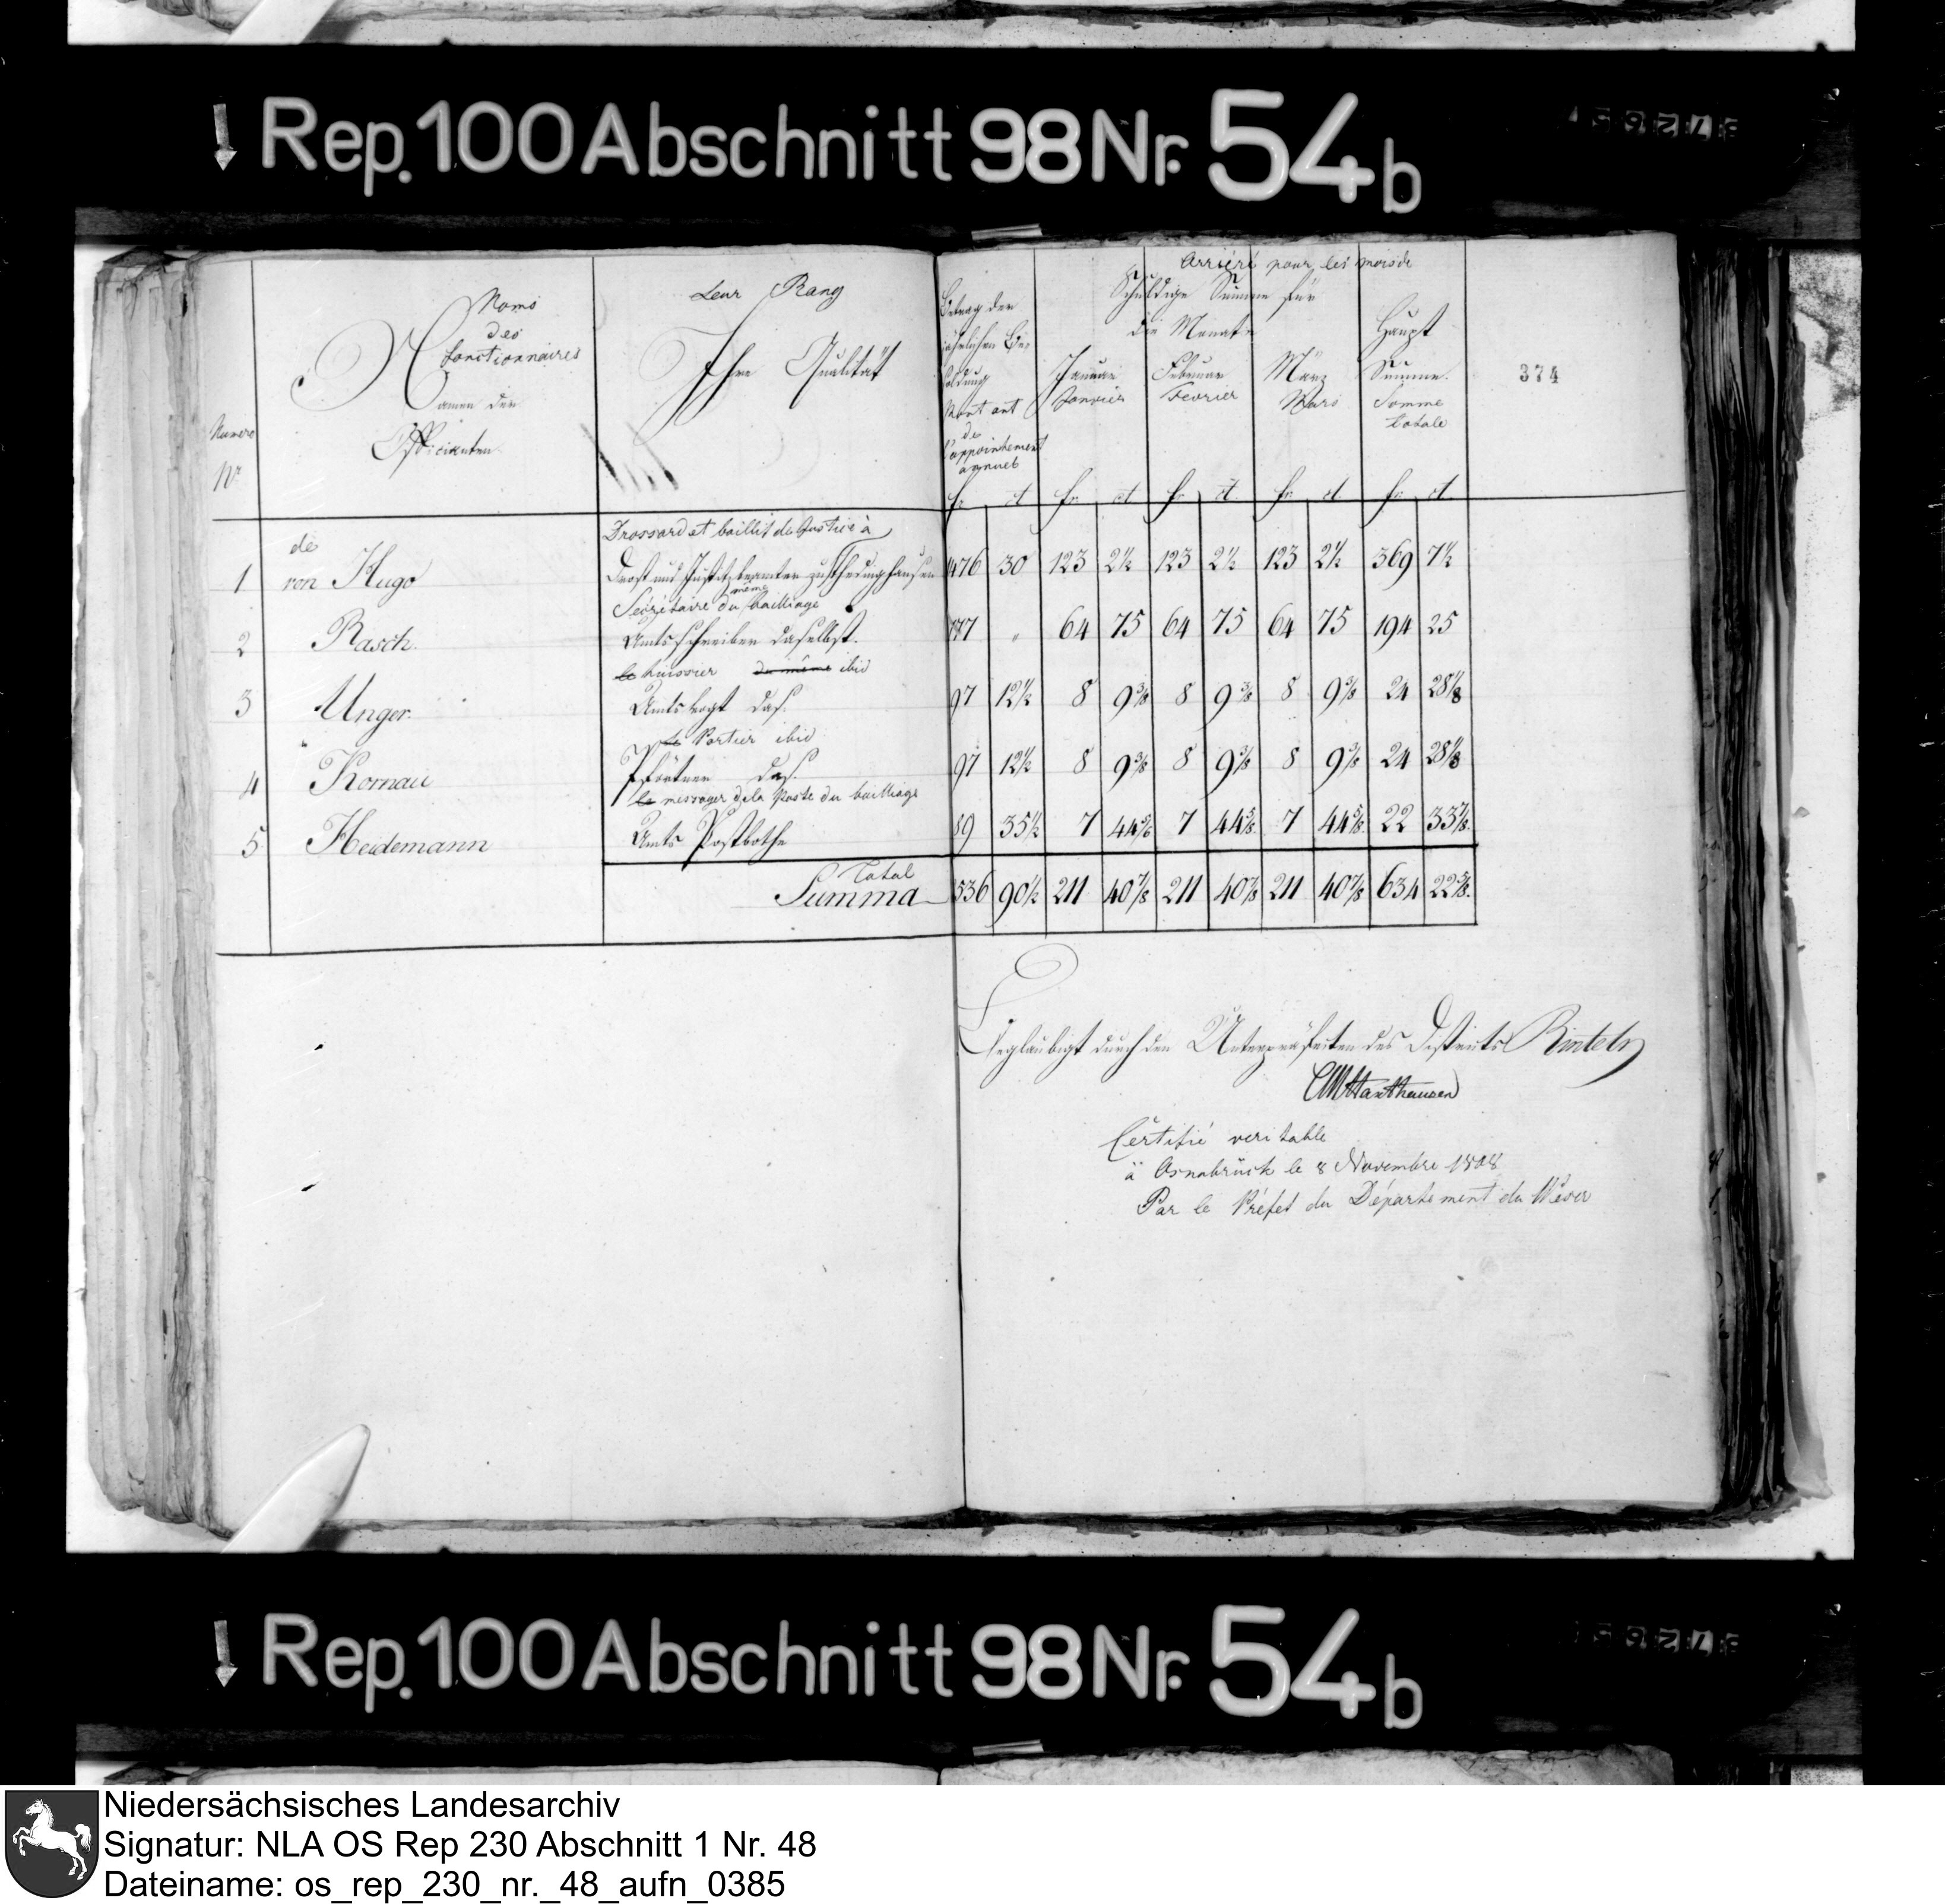 Rep. 100 Abschnitt 98 Nr. 54b
374
Numero
Nr
Noms
des
fonctionnaires
Namen der
Officianten
Leur Rang
Ihre Qualität
Betrag der
jährlichen Be-
soldung
Montant
de
l'appointement
annuel
Arriéré pour les mois de
Schuldige Summe für
die Monate
Januar
Janvier
Februar
Fevrier
März
Mars
Haupt
Summe.
Somme
totale
fr. ct fr. ct fr. ct. fr. ct fr. ct.
Drossard et baillif de Justice à
de
1 von Hugo Drost und Justitzbeamter zu 1476 30 123 2½ 123 2½ 123 2½ 369 7½
même
Secrétaire du bailliage
2 Rasch. Amtsschreiber daselbst. 777 " 64 75 64 75 64 75 194 25
le huissier du même ibid
3 Unger. Amtsvogt das. 97 12½ 8 9⅜ 8 9⅜ 8 9⅜ 24 28⅛
le Portier ibid
4 Kornau Pförtner das. 97 12½ 8 9⅜ 8 9⅜ 8 9⅜ 24 28⅛
le messager de la Poste du bailliage
5 Heidemann Amts Postbothe 89 35½ 7 44⅝ 7 44⅝ 7 44⅝ 22 33⅞.
Total
Summa 2536 90½ 211 40⅞ 211 40⅞ 211 40⅞ 634 22⅝.
Beglaubigt durch den Unterpräfecten des Districts Rinteln
CM Haxthausen
Certifié veritable
à Osnabrück le 8 Novembre 1808
Par le Préfet du Département du Weser
Rep. 100 Abschnitt 98 Nr. 54b
Niedersächsisches Landesarchiv
Signatur: NLA OS Rep 230 Abschnitt 1 Nr. 48
Dateiname: os_rep_230_nr._48_aufn_0385